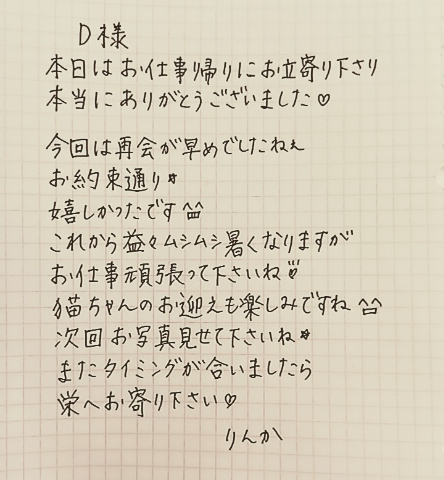 D様
本日はお仕事帰りにお立寄り下さり
本当にありがとうございました♡
今回は再会が早めでしたねぇ
お約束通り★
嬉しかったです^^
これから益々ムシムシ暑くなりますが
お仕事頑張って下さいね
猫ちゃんのお迎えも楽しみですね^^
次回お写真見せて下さいね★
またタイミングが合いましたら
栄へお寄り下さい♡
りんか